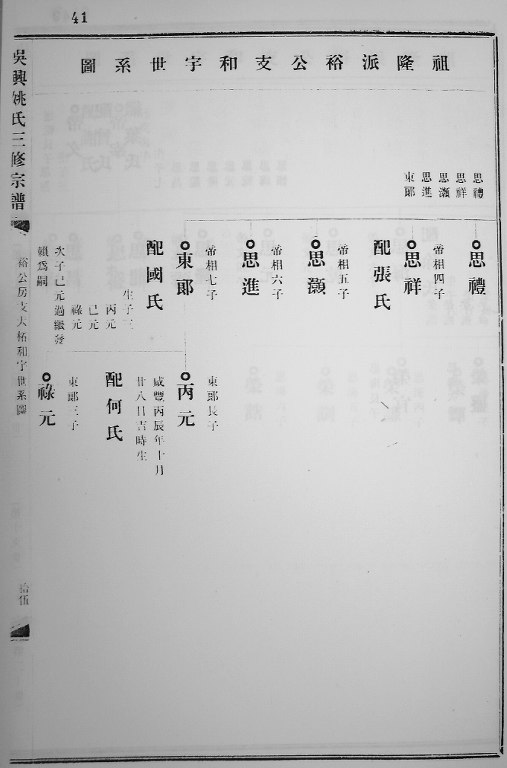 41
祖隆派裕公支和宇世系圖
思禮
思祥
思灝
思進
東郎
思禮
帝相四子
思祥
配張氏
帝相五子
思灝
帝相六子
思進
帝相七子
東郎
配國氏
生子三
丙元
己元
祿元
次子己元過繼發
賴為嗣
東郎長子
丙元
咸豐丙辰年十月
廿八日吉時生
配何氏
東郎三子
祿元
吳興姚氏三修宗譜
裕公房支大柘和宇世系圖
拾伍